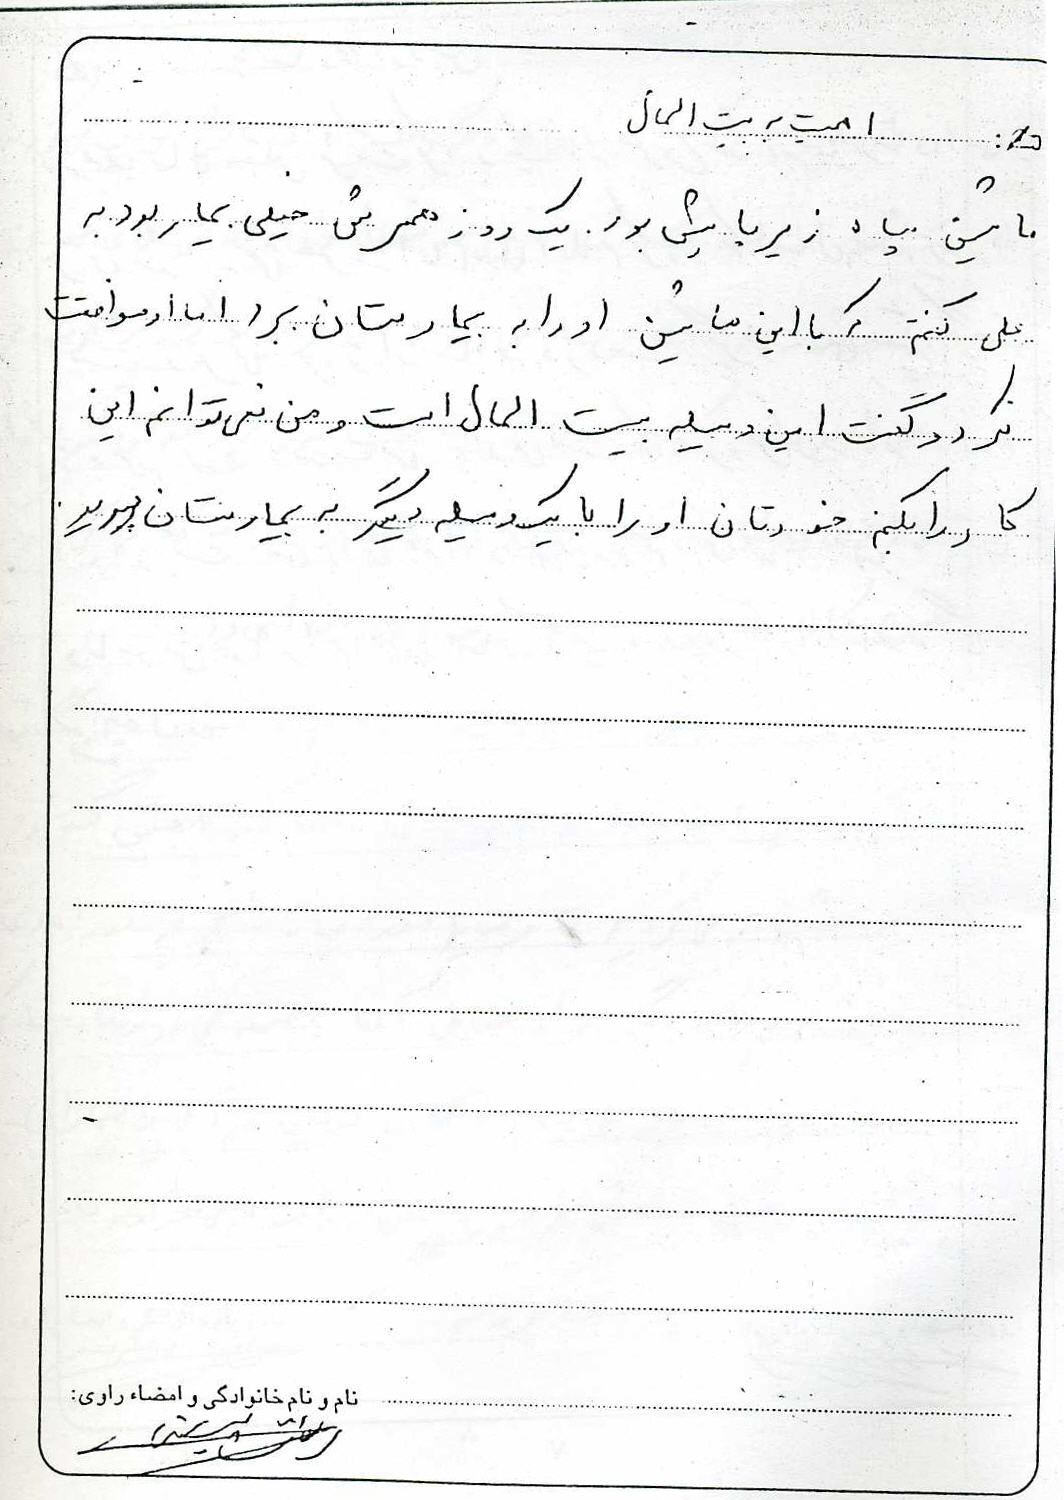 اهمیت به بیت المال
ماشین سپاه زیر پایش بود. یک روز همسرش خیلی بیمار بود به
علی گفتم که با این ماشین او را به بیمارستان ببرد اما او موافقت
نکرد و گفت این وسیله بیت المال است و من نمی توانم این
کار را بکنم خودتان او را با یک وسیله دیگر به بیمارستان ببرید.
نام و نام خانوادگی و امضاء راوی: